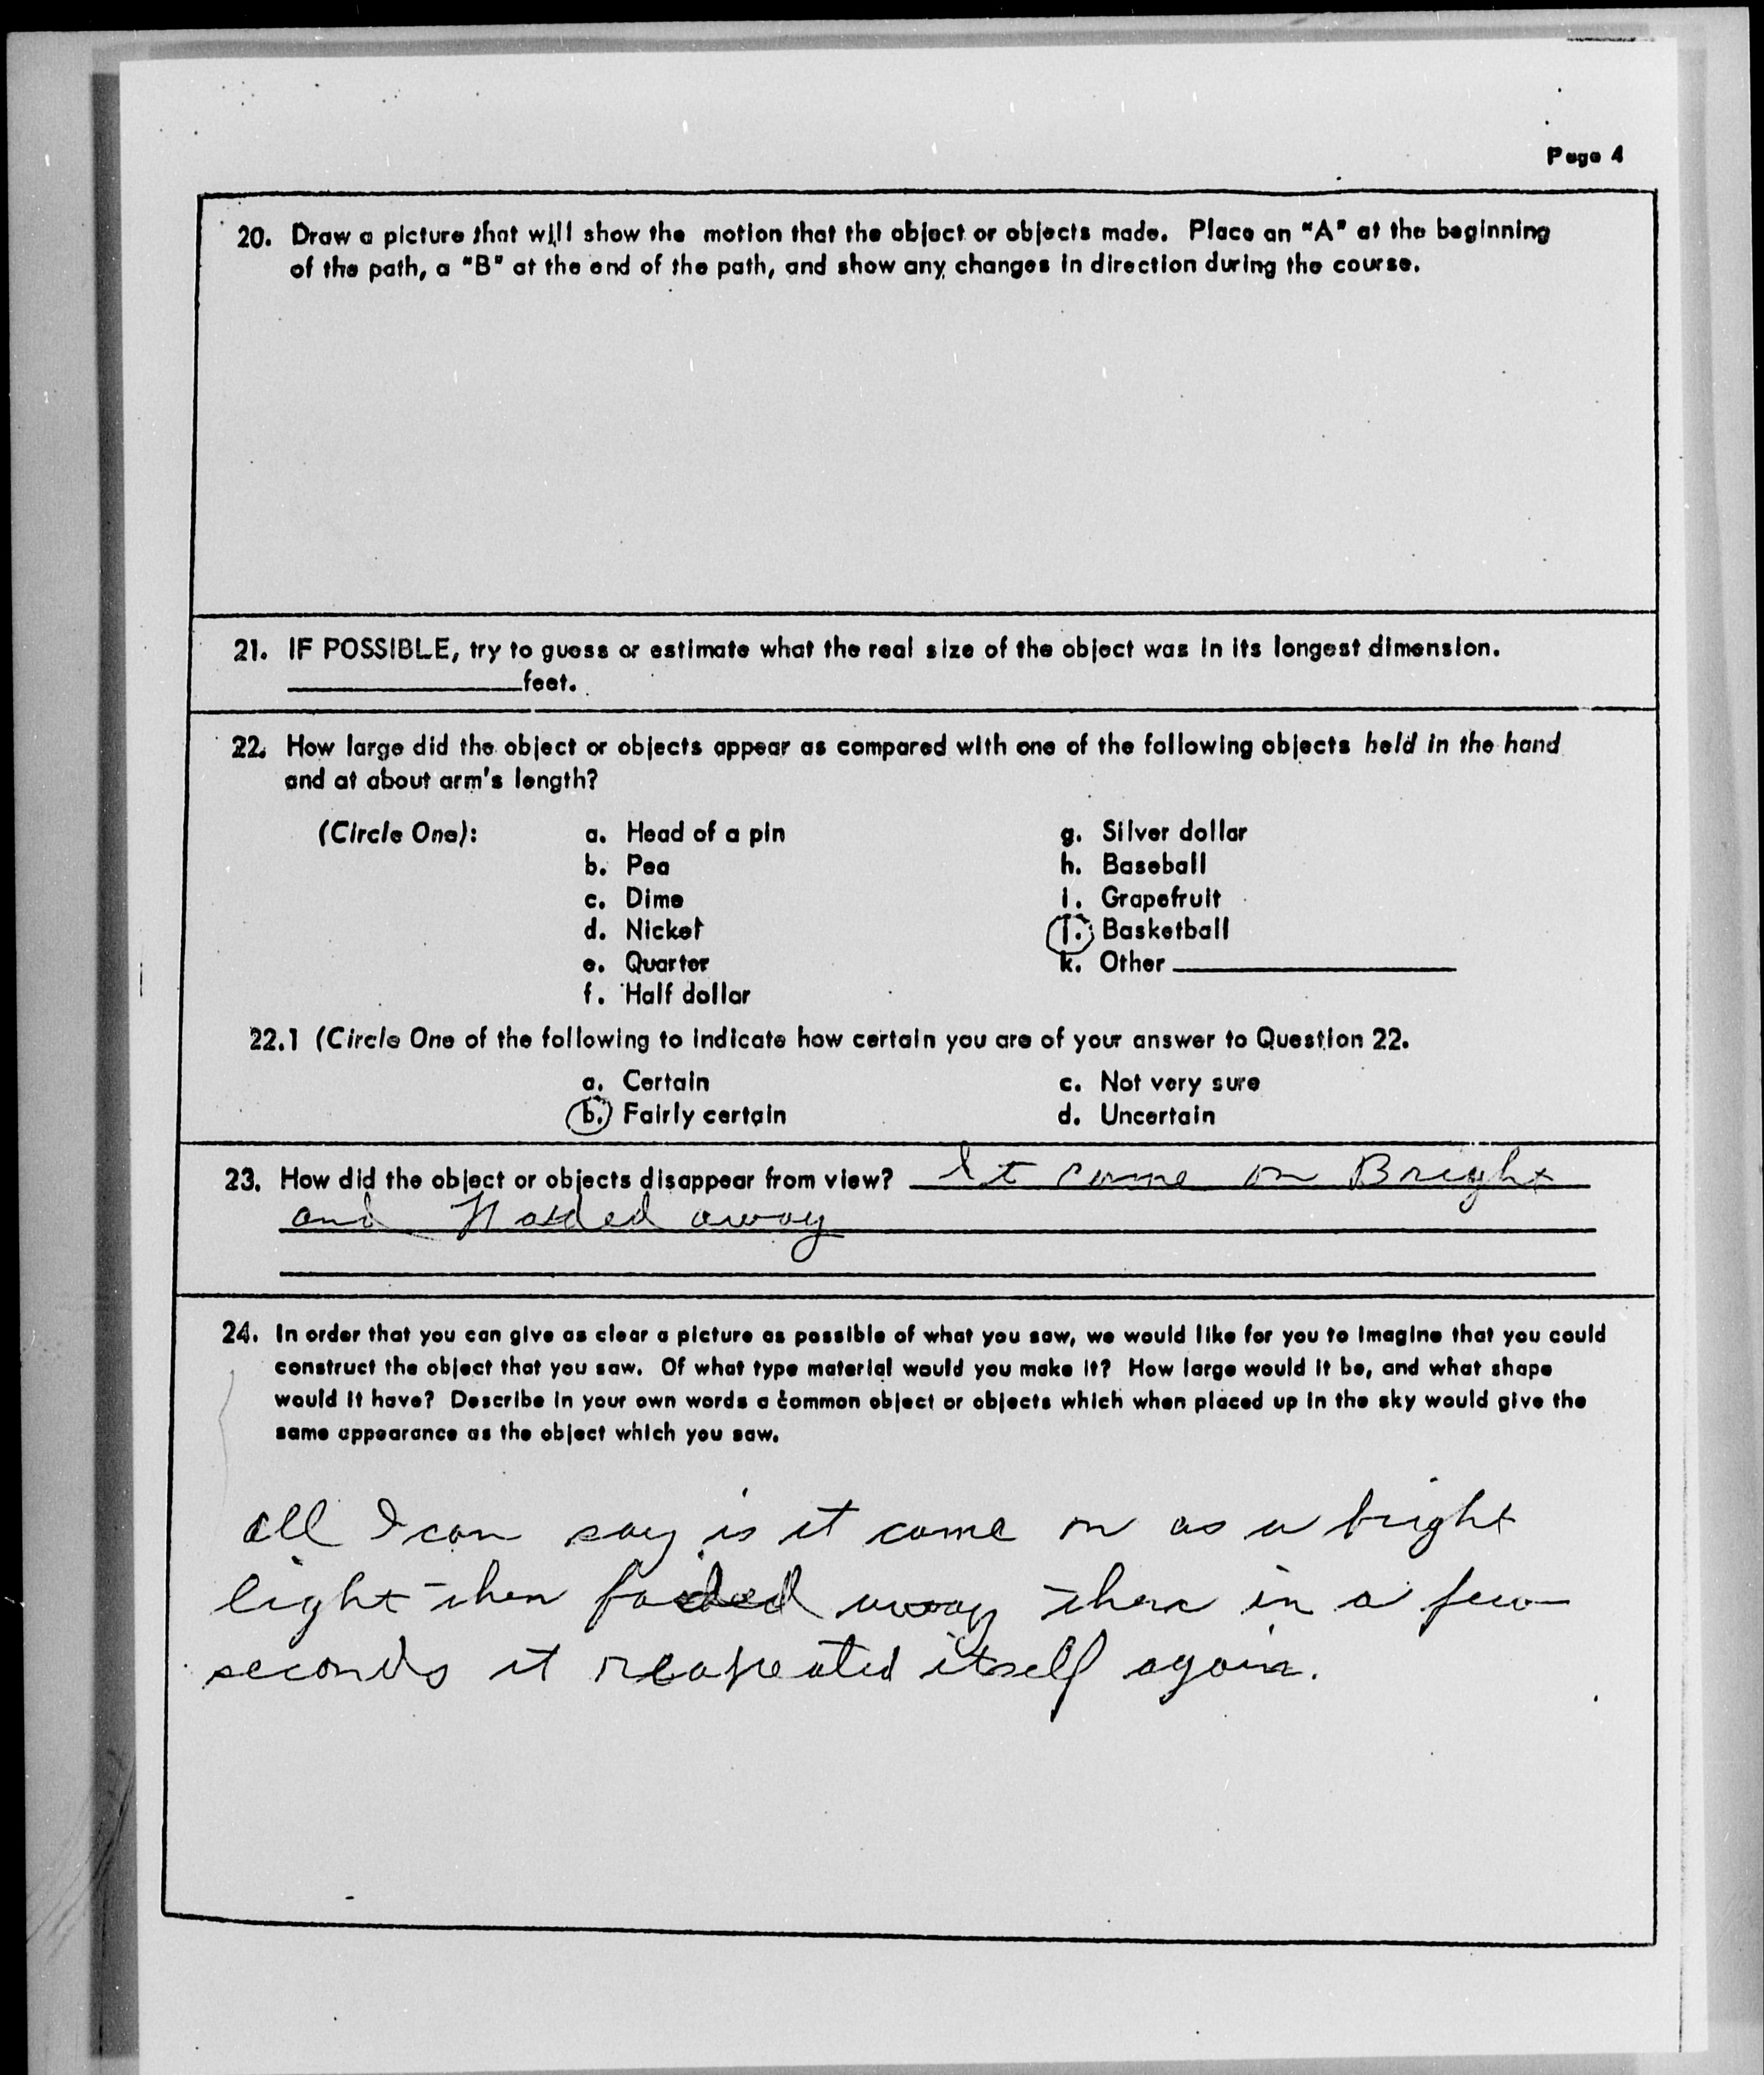 Page 4
20. Draw a picture that will show the motion that the object or objects made. Place an "A" at the beginning
of the path, a "B" at the end of the path, and show any changes in direction during the course.
21. IF POSSIBLE, try to guess or estimate what the real size of the object was in its longest dimension.
feet.
22. How large did the object or objects appear as compared with one of the following objects held in the hand
and at about arm's length?
(Circle One): a. Head of a pin g. Silver dollar
b. Pea h. Baseball
c. Dime i. Grapefruit
d. Nickel j. Basketball
e. Quarter k. Other
f. Half dollar
22.1 (Circle One of the following to indicate how certain you are of your answer to Question 22.
a. Certain c. Not very sure
b. Fairly certain d. Uncertain
23. How did the object or objects disappear from view? It came on Bright
and away
24. In order that you can give as clear a picture as possible of what you saw, we would like for you to imagine that you could
construct the object that you saw. Of what type material would you make it? How large would it be, and what shape
would it have? Describe in your own words a common object or objects which when placed up in the sky would give the
same appearance as the object which you saw.
all I can say is it came on as a bright
light then faded away then in a few
seconds it reapeated itself again.